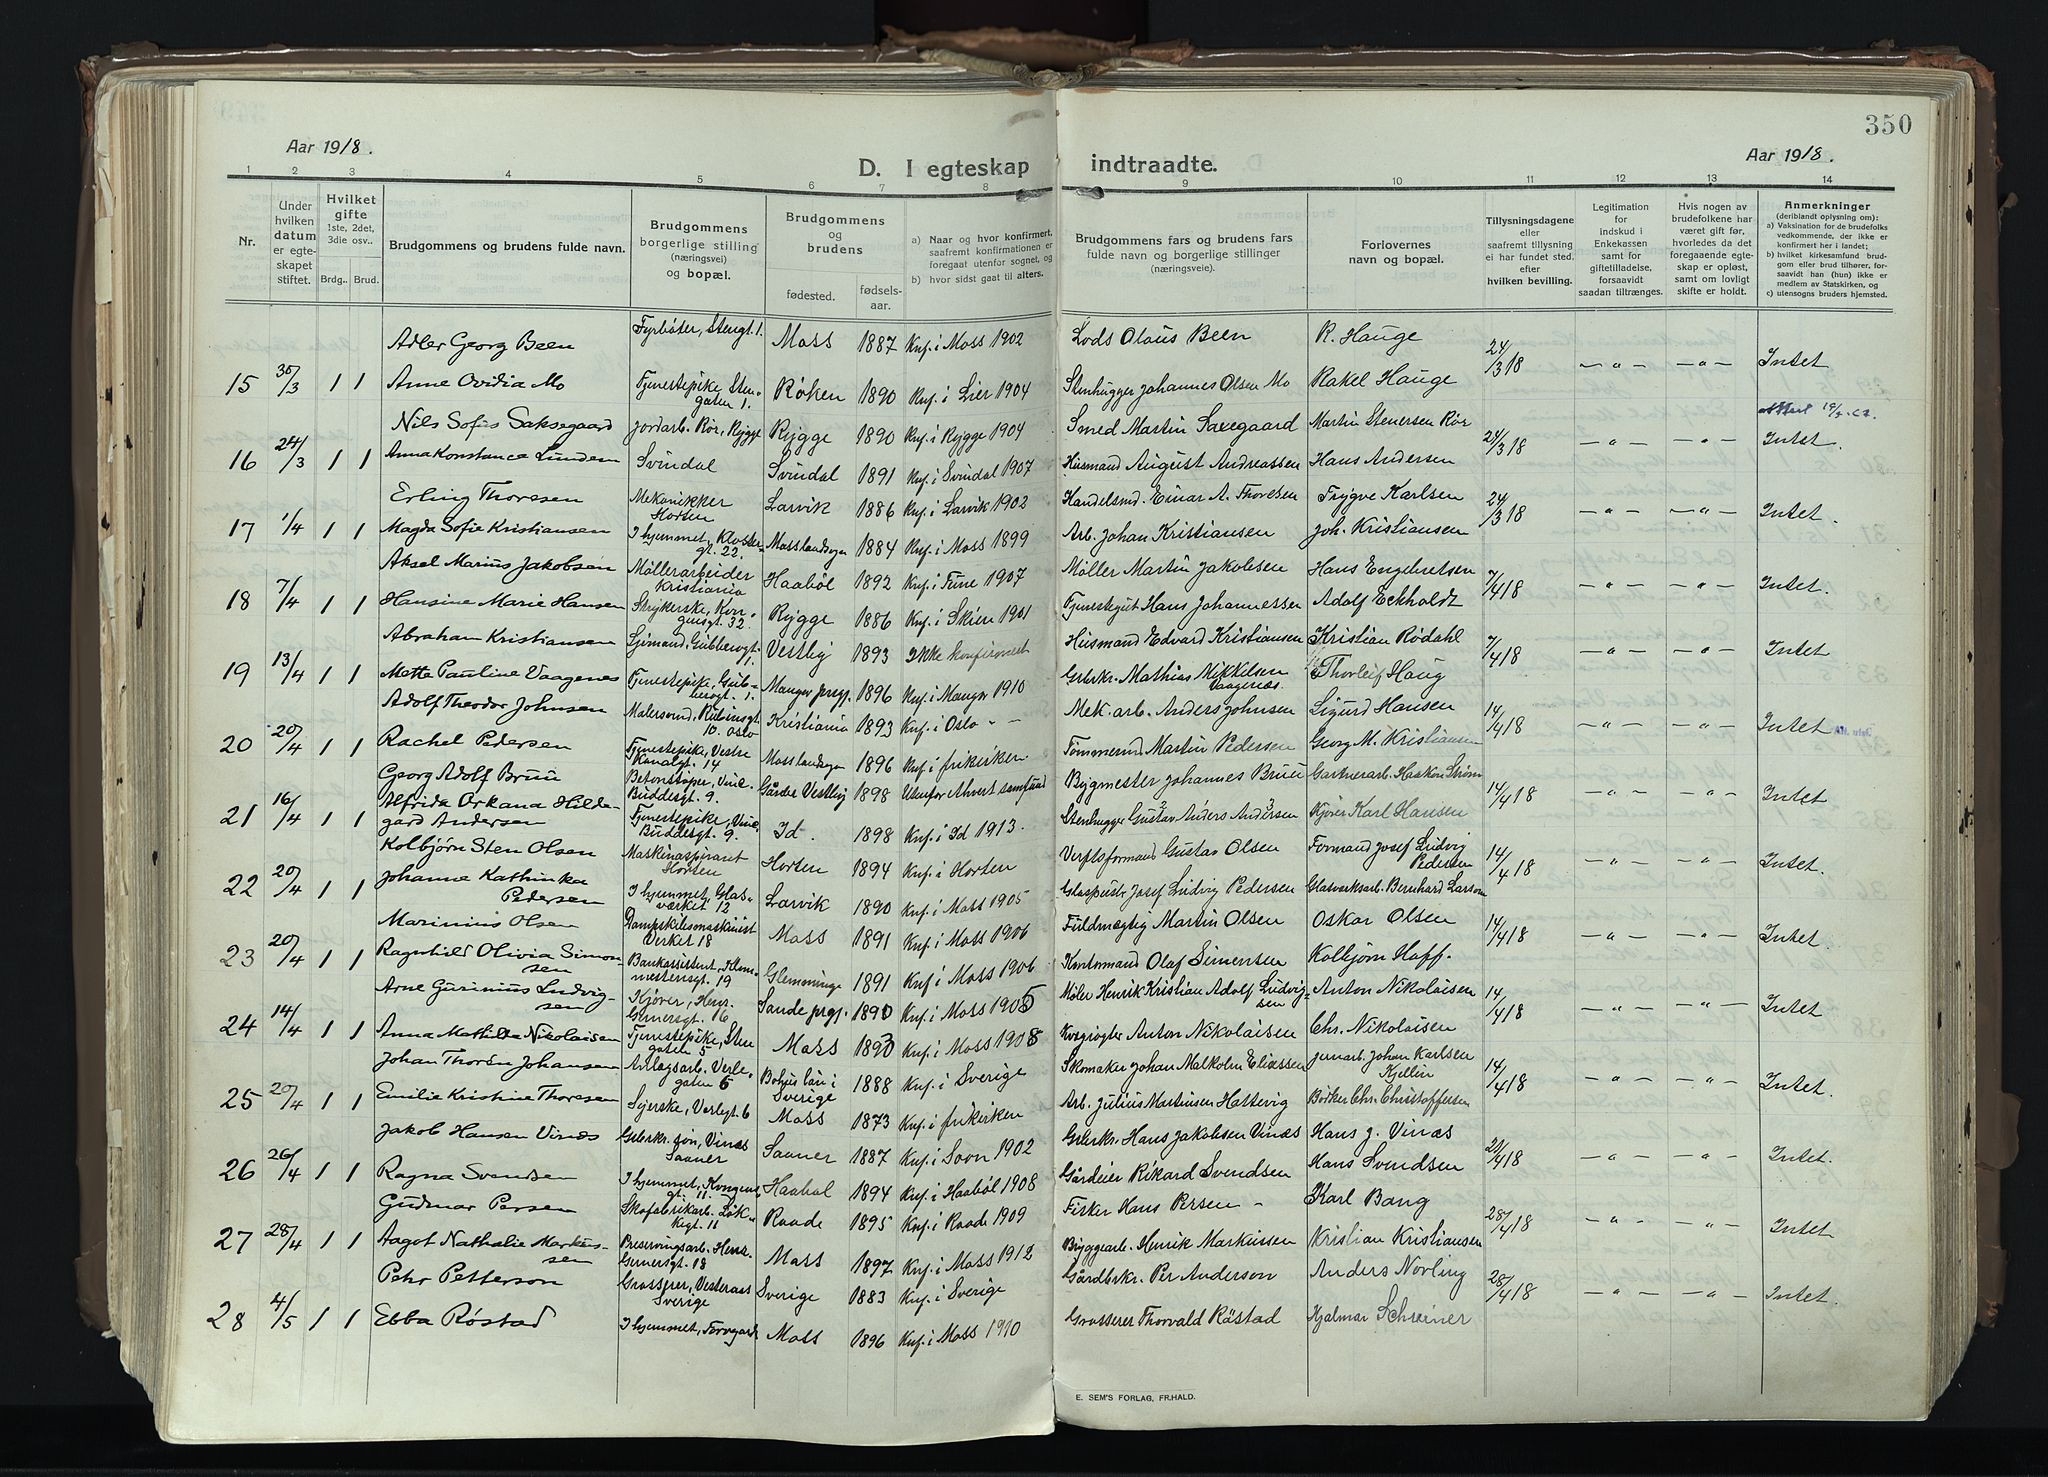 350
Aar 1918.
D. I egteskap indtraadte.
Aar 1918.
1 2 3 4 5 6 7 8 9 10 11 12 13 14
Nr.
Under hvilken datum er egteskapet stiftet.
Hvilket gifte 1ste, 2det, 3die osv..
Brdg.. Brud.
Brudgommens og brudens fulde navn.
Brudgommens borgerlige stilling (næringsvei) og bopæl.
Brudgommens og brudens
fødested. fødsels-aar.
a) Naar og hvor konfirmert, saafremt konfirmationen er foregaat utenfor sognet, og
b) hvor sidst gaat til alters.
Brudgommens fars og brudens fars fulde navn og borgerlige stillinger (næringsvei).
Forlovernes navn og bopæl.
Tillysningsdagene eller saafremt tillysning ei har fundet sted. efter hvilken bevilling.
Legitimation for indskud i Enkekassen samt for giftetilladelse, forsaavidt saadan tiltrænges.
Hvis nogen av brudefolkene har været gift før, hvorledes da det foregaaende egteskap er opløst, samt om lovligt skifte er holdt.
Anmerkninger
(deriblandt oplysning om):
a) Vaksination for de brudefolks vedkommende, der ikke er konfirmert her i landet;
b) hvilket kirkesamfund brudgom eller brud tilhører, forsaavidt han (hun) ikke er medlem av Statskirken, og
c) utensogns bruders hjemsted.
Adler Georg Been Fyrbøter, Stengt. 1. Moss 1887 Knf. i Moss 1902 Lods Olaus Been R. Hauge
15 30/3 1 1 Anne Ovidia Mo Tjenestepike, Stengaten 1. Røken 1890 Knf. i Lier 1904 Stenhugger Johannes Olsen Mo Rakel Hauge 24/3 18 — " — — " — Intet
Nils Sofus Saksegaard Jordarb. Rør, Rygge Rygge 1890 Knf. i Rygge 1904 Smed Martin Saxegaard Martin Stenersen Rør
16 24/3 1 1 Anna Konstance Lunden Svindal Svindal 1891 Knf. i Svindal 1907 Husmand August Andreassen Hans Andersen 24/3 18 — " — — " — Intet.
Erling Thoresen Mekanikker Horten Larvik 1886 Knf. i Larvik 1902 Handelsmd. Einar A. Thoresen Trygve Karlsen
17 1/4 1 1 Magda Sofie Kristiansen I hjemmet, Klostergt. 22. Moss landsogn 1884 Knf. i Moss 1899 Arb. Johan Kristiansen Joh. Kristiansen 24/3 18 — " — — " — Intet.
Aksel Marius Jakobsen Møllerarbeider Kristiania Haabøl 1892 Knf. i Tune 1907 Møller Martin Jakobsen Hans Engebretsen
18 7/4 1 1 Hansine Marie Hansen Strykerske, Kongensgt. 32. Rygge 1886 Knf. i Skien 1901 Tjenestegut Hans Johannessen Adolf Eckholdt 7/4 18 — " — — " — Intet.
Abraham Kristiansen Sjømand, Gubberogt. 1. Vestby 1893 Ikke konfirmert Husmand Edvard Kristiansen Kristian Rødahl
19 13/4 1 1 Mette Pauline Vaagenes Tjenestepike, Gubberogt. 1. Manger prgj. 1896 Knf. i Manger 1910 Gbrkr. Mathias Mikkelsen Vaagenes. Thorleif Haug 7/4 18 — " — — " — Intet
Adolf Theodor Johnsen Malersvend, Rubinsgt. 10. Oslo Kristiania 1893 Knf. i Oslo - - Mek. arb. Anders Johnsen Sigurd Hansen
20 20/4 1 1 Rachel Pedersen Tjenestepike, Vestre Kanalgt. 14 Moss landsogn 1896 Knf. i frikirken Tømmermd Martin Pedersen Georg M. Kristiansen 14/4 18 — " — — " — Intet
Georg Adolf Bruu Betonstøper, Vinc. Buddesgt. 9. Gårder Vestby 1898 Utenfor ethvert samfund Bygmester Johannes Bruu Gartnerarb. Haakon Strøm
21 16/4 1 1 Alfrida Orkana Hildegard Andersen Tjenestepike, Vinc. Buddesgt. 9. Id. 1898 Knf. i Id 1913. Stenhugger Gustav Anders Andersen Kjører Karl Hansen 14/4 18 — " — — " — Intet
Kolbjørn Sten Olsen Maskinaspirant Horten Horten 1894 Knf. i Horten Verftsformand Gustav Olsen Formand Josef Ludvig Pedersen
22 20/4 1 1 Johanne Kathinka Pedersen I hjemmet, Glasverket 12 Larvik 1890 Knf. i Moss 1905 Glaspuster Josef Ludvig Pedersen Glasverksarb. Bernhard Larson 14/4 18 — " — — " — Intet.
Marinius Olsen Dampskibsmaskinist Verket 18 Moss 1891 Knf. i Moss 1906 Fuldmægtig Martin Olsen Oskar Olsen
23 20/4 1 1 Ragnhild Olivia Simonsen Bankassistent, 19 Glemminge 1891 Knf i Moss 1906 Kontormand Olaf Simensen Kolbjørn Hoff. 14/4 18 — " — — " — Intet.
Arne Gurinius Ludvigsen Kjører, Henr. Gernersgt. 16 Sande prgj. 1890 Knf. i Moss 1905 Maler Henrik Kristian Adolf Ludvigsen Anton Nikolaisen
24 14/4 1 1 Anna Mathilde Nikolaisen Tjenestepike, Stengaten 5 Moss 1893 Knf. i Moss 1908 Kvægrøgter Anton Nikolaisen Chr. Nikolaisen 14/4 18 — " — — " — Intet
Johan Thorén Johansen Anlægsarb. Verlegaten 6 Bohus län i Sverige 1888 Knf. i Sverige Skomaker Johan Malkolm Eliassen Jernarb. Johan Karlsen Kjellin
25 20/4 1 1 Emilie Kristine Thoresen Syerske, Verlegt. 6 Moss 1873 Knf. i frikirken Arb. Julius Martinsen Hattevig Bødker Chr. Christoffersen 14/4 18 — " — — " — Intet.
Jakob Hansen Vinæs Gbrkr. søn, Vinæs Saaner Saaner 1887 Knf. i Sovn 1902 Gbrkr. Hans Jakobsen Vinæs Hans J. Vinæs
26 26/4 1 1 Ragna Svendsen I hjemmet, Kongensgt. 11 Haabøl 1894 Knf. i Haabøl 1908 Gårdeier Rikard Svendsen Hans Svendsen 21/4 18 — " — — " — Intet.
Gudmar Persen Skofabrikarb. Løkkegt. 11 Raade 1895 Knf. i Raade 1909 Fisker Hans Persen - Karl Bang
27 28/4 1 1 Aagot Nathalie Markussen Preservingsarb. Henr. Gernersgt. 18 Moss 1897 Knf. i Moss 1912 Bryggearb. Henrik Markussen Kristian Kristiansen 28/4 18 — " — — " — Intet
Pehr Petterson Grosserer, Vesteraas Sverige Sverige 1883 Knf. i Sverige Gårdbrkr. Per Anderson Anders Novling
28 4/5 1 1 Ebba Røstad I hjemmet, Moss 1896 Knf. i Moss 1910 Grosserer Thorvald Røstad Hjalmar Schreiner 28/4 18 — " — — " — Intet.
E. SEM'S FORLAG, FR.HALD.